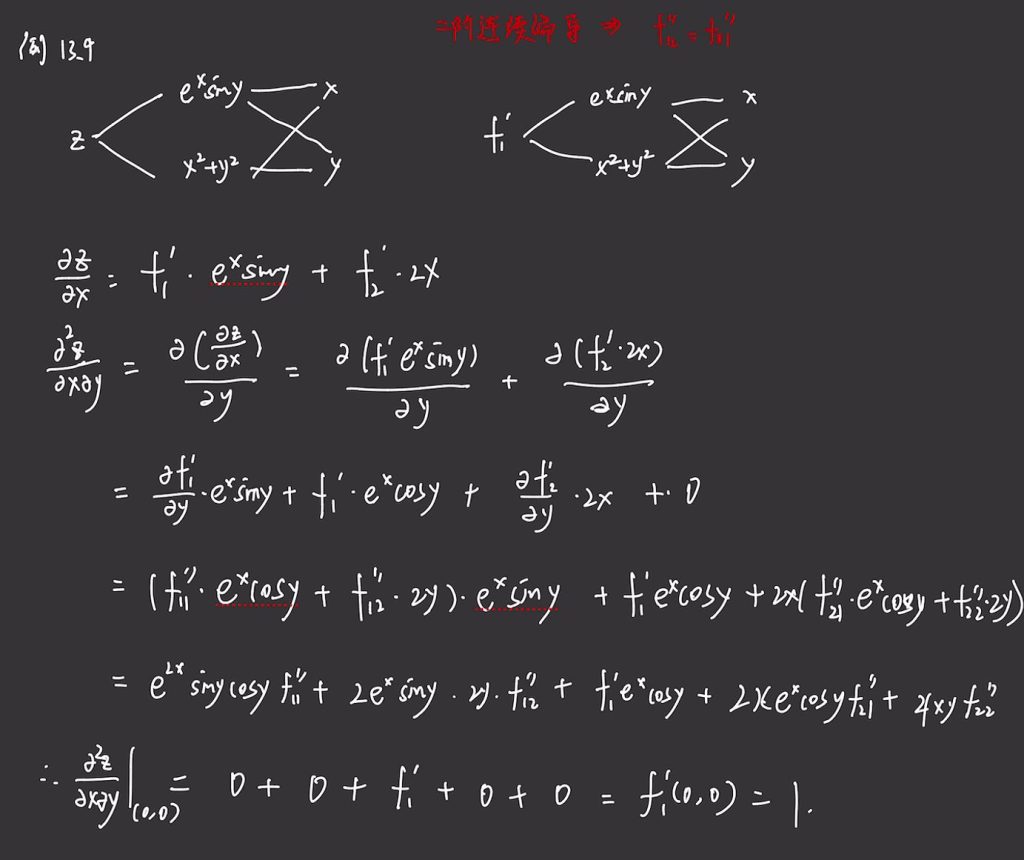 二阶连续偏导 ⇒ f₁₂'' = f₂₁''
例 13.9
z e^x siny x²+y² x y
f₁' e^x siny x²+y² x y
∂z/∂x = f₁' · e^x siny + f₂' · 2x
∂²z/∂x∂y = ∂(∂z/∂x)/∂y = ∂(f₁' e^x siny)/∂y + ∂(f₂'·2x)/∂y
= ∂f₁'/∂y · e^x siny + f₁' · e^x cosy + ∂f₂'/∂y · 2x + 0
= (f₁₁'' · e^x cosy + f₁₂'' · 2y) · e^x siny + f₁' e^x cosy + 2x(f₂₁'' · e^x cosy + f₂₂'' · 2y)
= e^{2x} siny cosy f₁₁'' + 2e^x siny · 2y · f₁₂'' + f₁' e^x cosy + 2xe^x cosy f₂₁'' + 4xy f₂₂''
∴ ∂²z/∂x∂y |(0,0) = 0 + 0 + f₁' + 0 + 0 = f₁'(0,0) = 1.